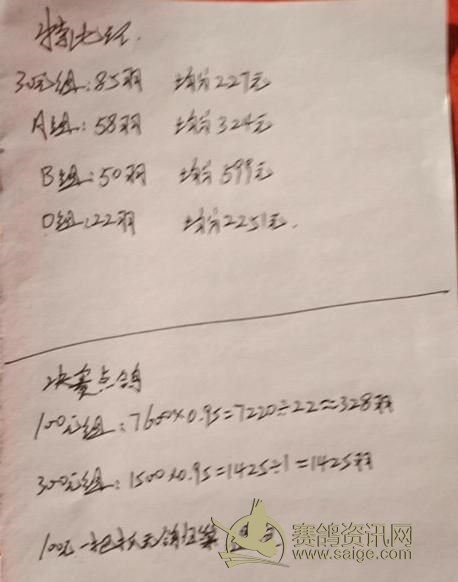 特比环.
30元组:85羽 均分227元
A组:58羽 均分324元
B组:50羽 均分599元
D组:22羽 均分2251元.
决赛点鸽
100元组:7600×0.95=7220÷22≈328羽
300元组:1500×0.95=1425÷1=1425羽
100元一把抓无鸽
赛鸽资讯网
www.saige.com